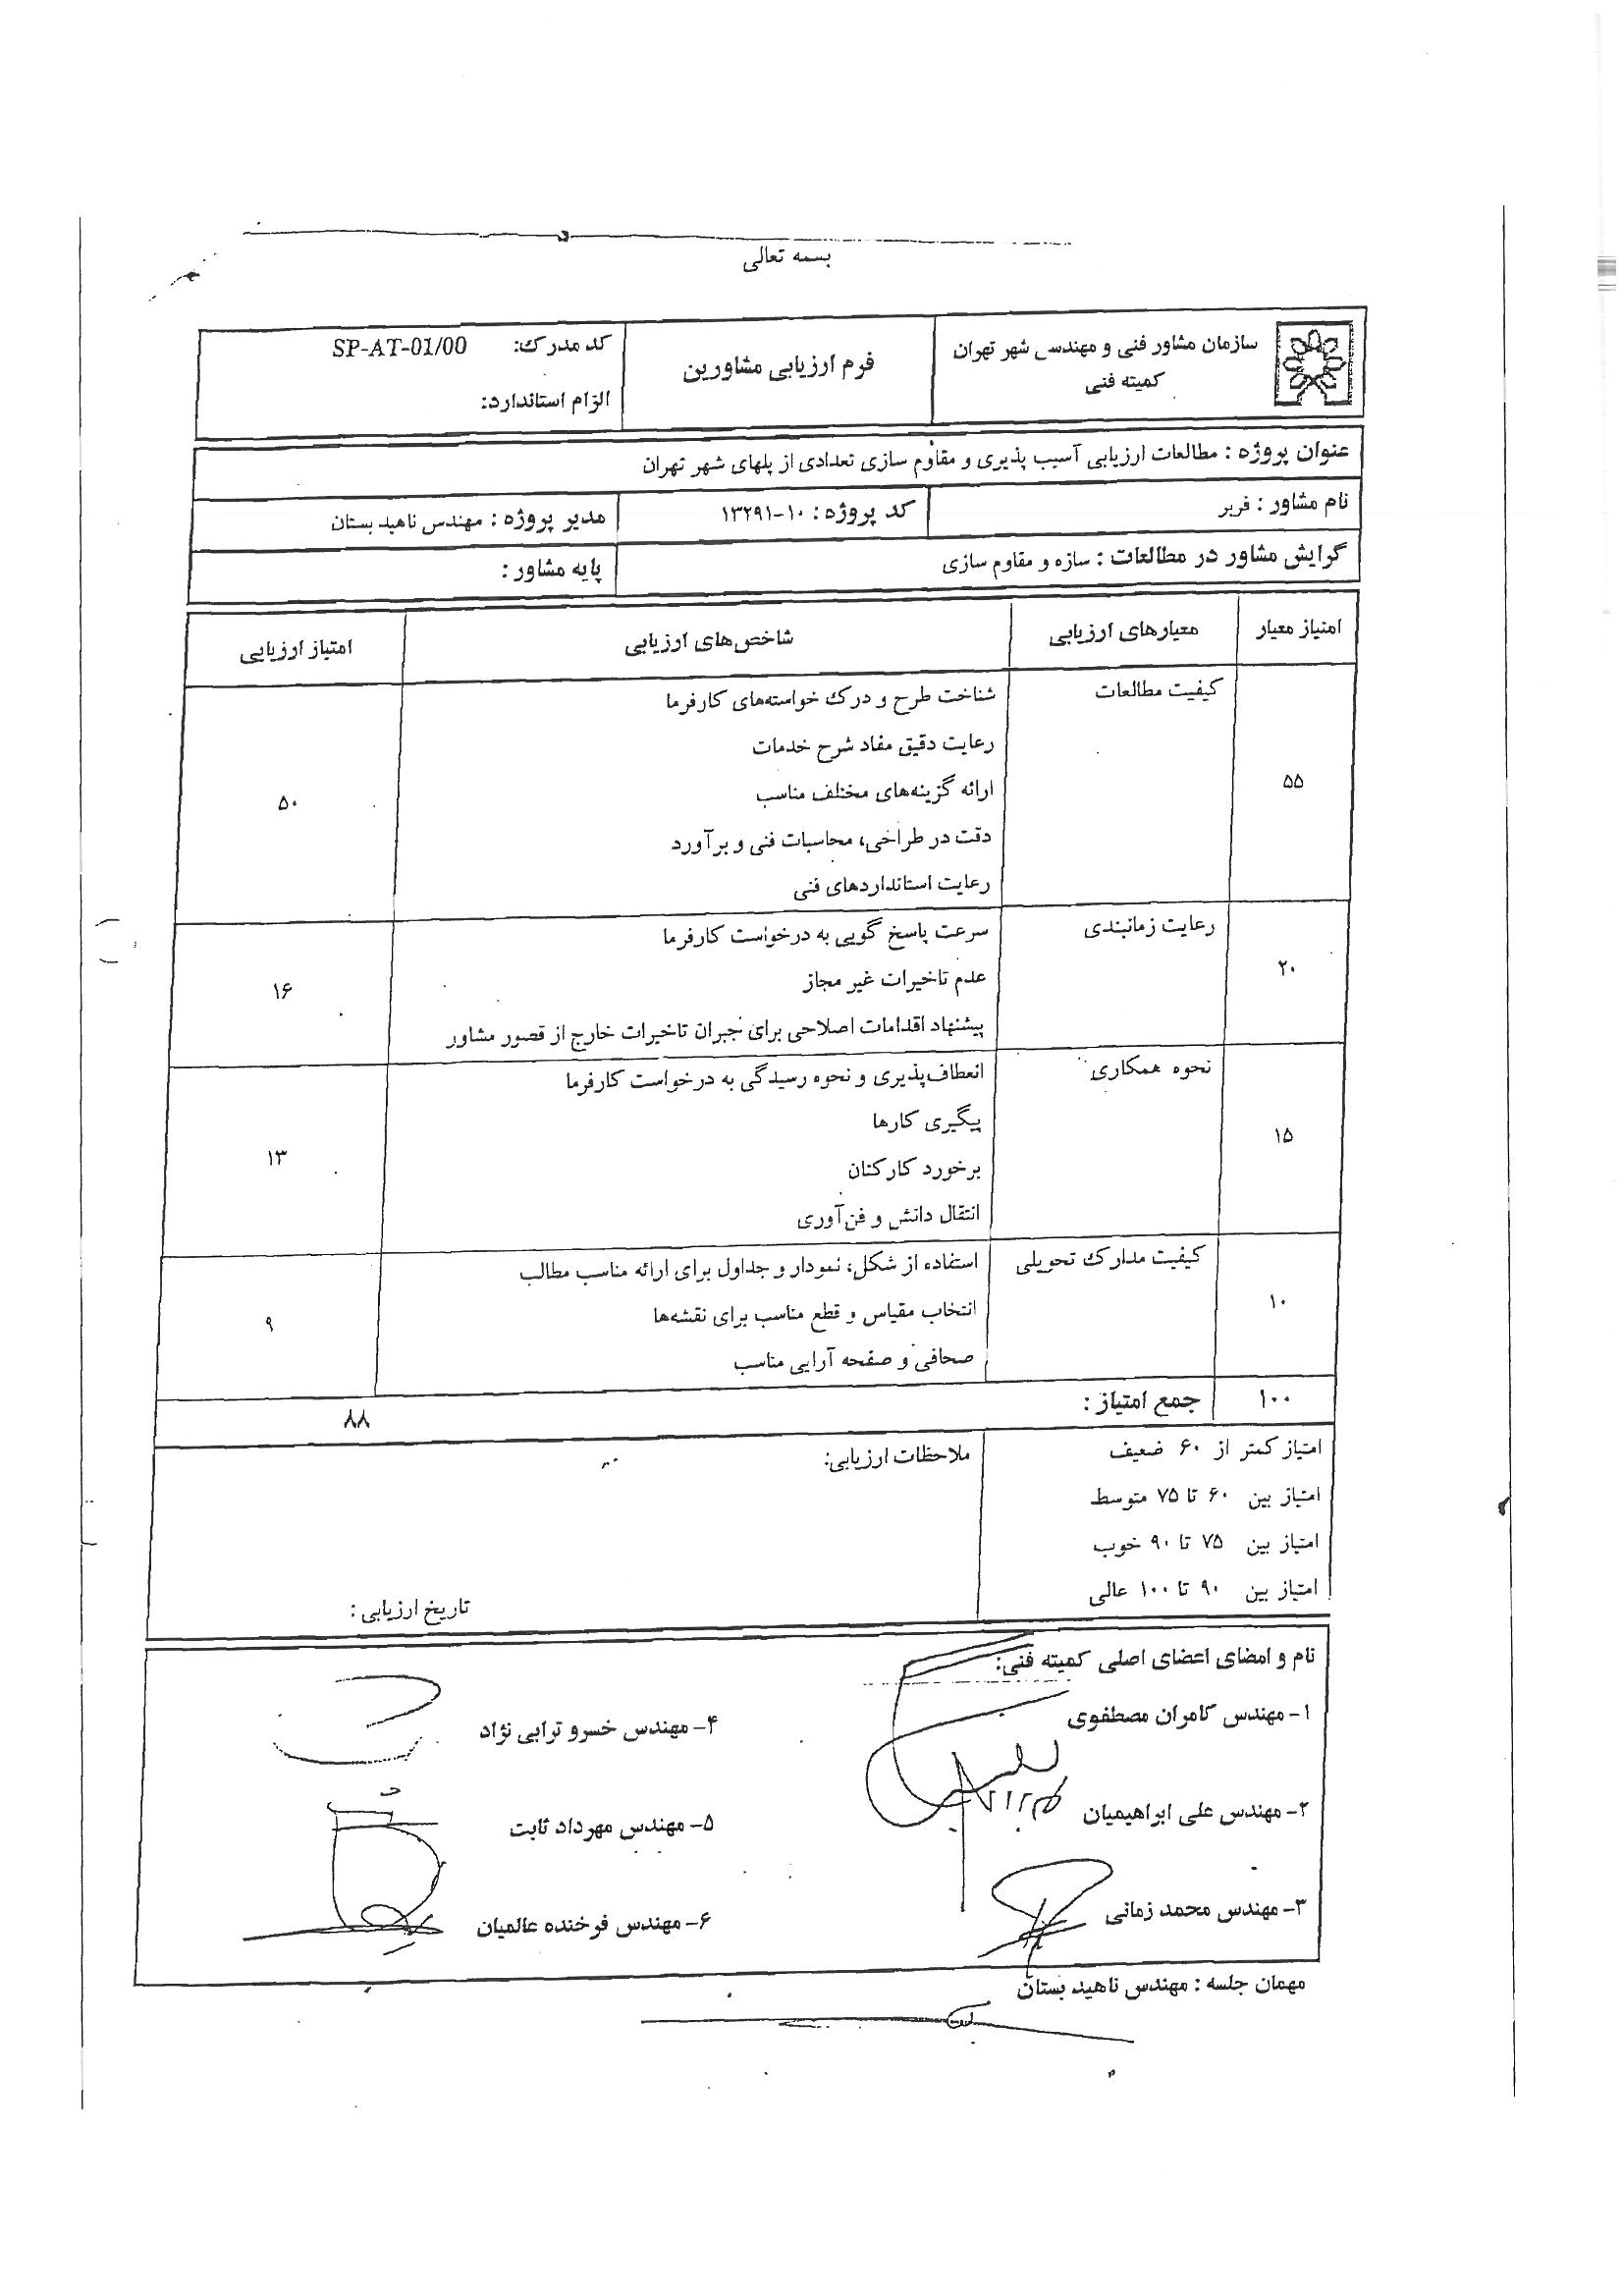 بسمه تعالی
سازمان مشاور فنی و مهندسی شهر تهران
کمیته فنی
فرم ارزیابی مشاورین
کد مدرک: SP-AT-01/00
الزام استاندارد:
عنوان پروژه : مطالعات ارزیابی آسیب پذیری و مقاوم سازی تعدادی از پلهای شهر تهران
نام مشاور : فربر
کد پروژه : ۱۰-۱۳۲۹۱
مدیر پروژه : مهندس ناهید بستان
گرایش مشاور در مطالعات : سازه و مقاوم سازی
پایه مشاور :
امتیاز معیار
معیارهای ارزیابی
شاخص‌های ارزیابی
امتیاز ارزیابی
۵۵
کیفیت مطالعات
شناخت طرح و درک خواسته‌های کارفرما
رعایت دقیق مفاد شرح خدمات
ارائه گزینه‌های مختلف مناسب
دقت در طراحی، محاسبات فنی و برآورد
رعایت استانداردهای فنی
۵۰
۲۰
رعایت زمانبندی
سرعت پاسخ گویی به درخواست کارفرما
عدم تاخیرات غیر مجاز
پیشنهاد اقدامات اصلاحی برای جبران تاخیرات خارج از قصور مشاور
۱۶
۱۵
نحوه همکاری
انعطاف‌پذیری و نحوه رسیدگی به درخواست کارفرما
پیگیری کارها
برخورد کارکنان
انتقال دانش و فن‌آوری
۱۳
۱۰
کیفیت مدارک تحویلی
استفاده از شکل، نمودار و جداول برای ارائه مناسب مطالب
انتخاب مقیاس و قطع مناسب برای نقشه‌ها
صحافی و صفحه آرایی مناسب
۹
۱۰۰
جمع امتیاز :
۸۸
امتیاز کمتر از ۶۰ ضعیف
امتیاز بین ۶۰ تا ۷۵ متوسط
امتیاز بین ۷۵ تا ۹۰ خوب
امتیاز بین ۹۰ تا ۱۰۰ عالی
ملاحظات ارزیابی:
تاریخ ارزیابی :
نام و امضای اعضای اصلی کمیته فنی:
۱- مهندس کامران مصطفوی
۲- مهندس علی ابراهیمیان
۳- مهندس محمد زمانی
۴- مهندس خسرو ترابی نژاد
۵- مهندس مهرداد ثابت
۶- مهندس فرخنده عالمیان
مهمان جلسه : مهندس ناهید بستان